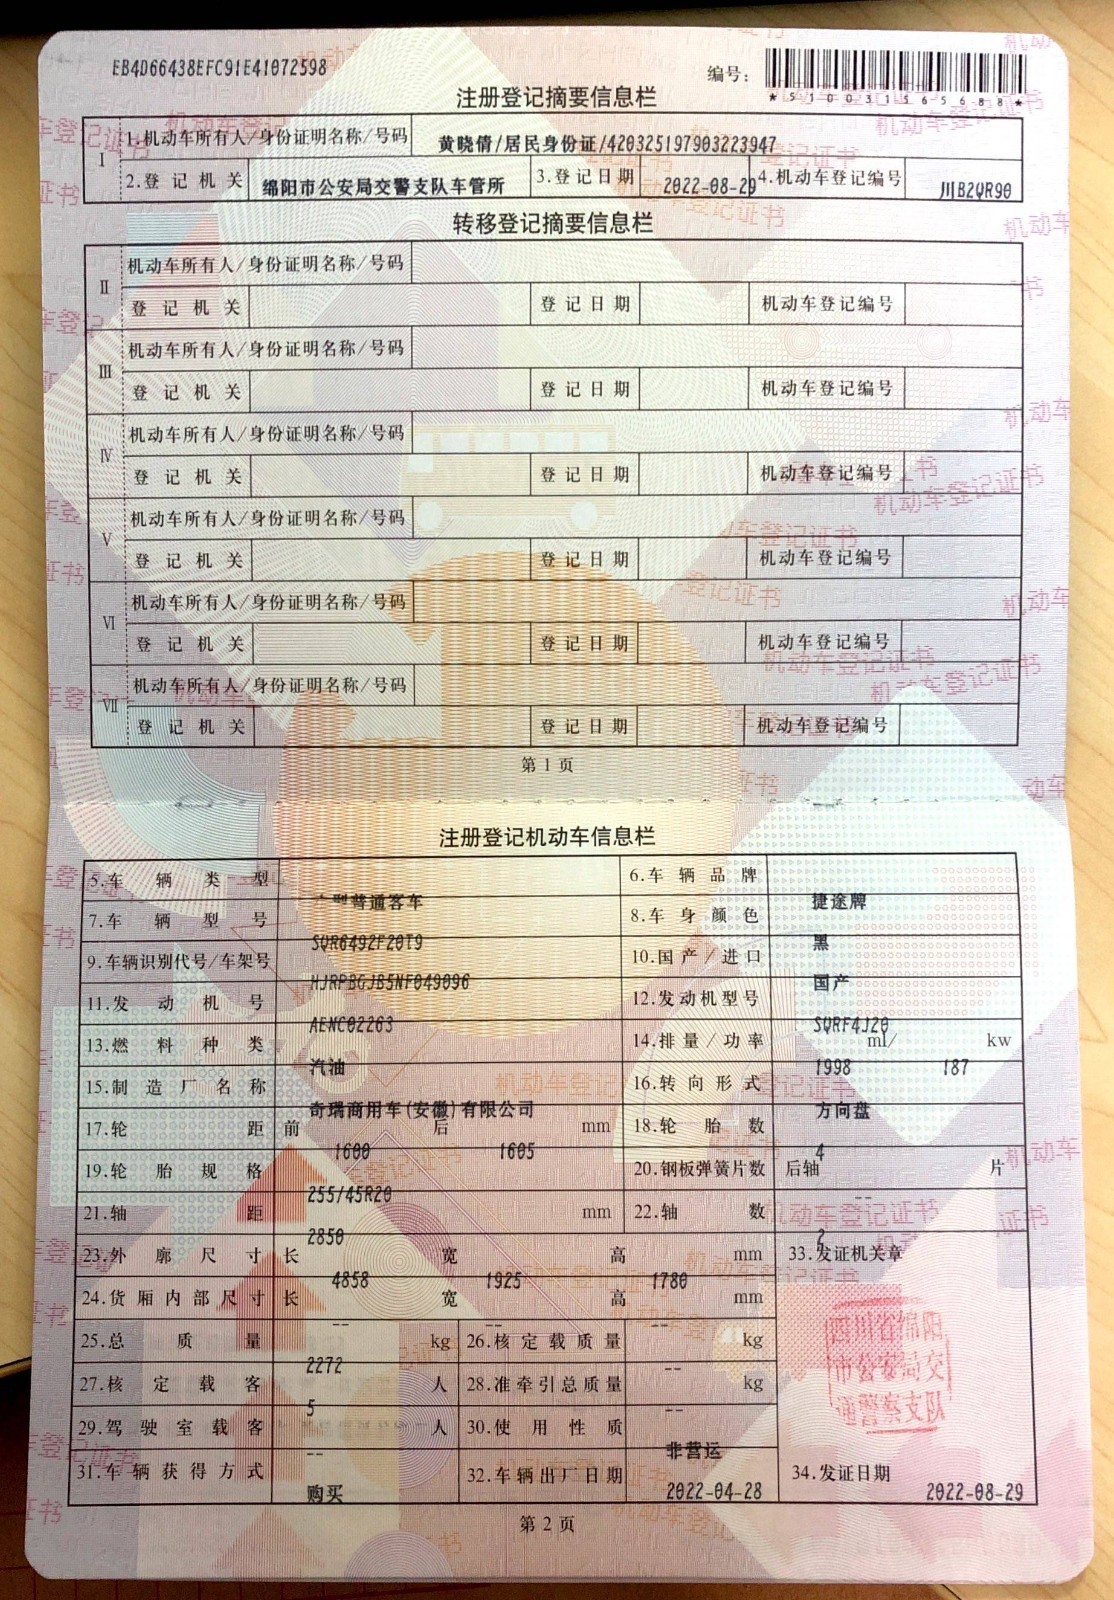 EB4D66438EFC91E41072598
编号：
*510031565688*
注册登记摘要信息栏
Ⅰ 1.机动车所有人/身份证明名称/号码 黄晓倩/居民身份证/420325197903223947
2.登记机关 绵阳市公安局交警支队车管所 3.登记日期 2022-08-29 4.机动车登记编号 川B2QR90
转移登记摘要信息栏
Ⅱ 机动车所有人/身份证明名称/号码
登记机关 登记日期 机动车登记编号
Ⅲ 机动车所有人/身份证明名称/号码
登记机关 登记日期 机动车登记编号
Ⅳ 机动车所有人/身份证明名称/号码
登记机关 登记日期 机动车登记编号
Ⅴ 机动车所有人/身份证明名称/号码
登记机关 登记日期 机动车登记编号
Ⅵ 机动车所有人/身份证明名称/号码
登记机关 登记日期 机动车登记编号
Ⅶ 机动车所有人/身份证明名称/号码
登记机关 登记日期 机动车登记编号
第1页
注册登记机动车信息栏
5.车辆类型 型普通客车 6.车辆品牌 捷途牌
7.车辆型号 SQR6492F20T9 8.车身颜色 黑
9.车辆识别代号/车架号 HJRPBGJB5NF049096 10.国产/进口 国产
11.发动机号 AENC02263 12.发动机型号 SQRF4J20
13.燃料种类 汽油 14.排量/功率 1998 ml/ 187 kw
15.制造厂名称 奇瑞商用车(安徽)有限公司 16.转向形式 方向盘
17.轮距 前 1600 后 1605 mm 18.轮胎数 4
19.轮胎规格 255/45R20 20.钢板弹簧片数 后轴 -- 片
21.轴距 2850 mm 22.轴数 2
23.外廓尺寸 长 4858 宽 1925 高 1780 mm 33.发证机关章
24.货厢内部尺寸 长 -- 宽 -- 高 -- mm
四川省绵阳
市公安局交
通警察支队
25.总质量 2272 kg 26.核定载质量 -- kg
27.核定载客 5 人 28.准牵引总质量 -- kg
29.驾驶室载客 -- 人 30.使用性质 非营运
31.车辆获得方式 购买 32.车辆出厂日期 2022-04-28 34.发证日期 2022-08-29
第2页